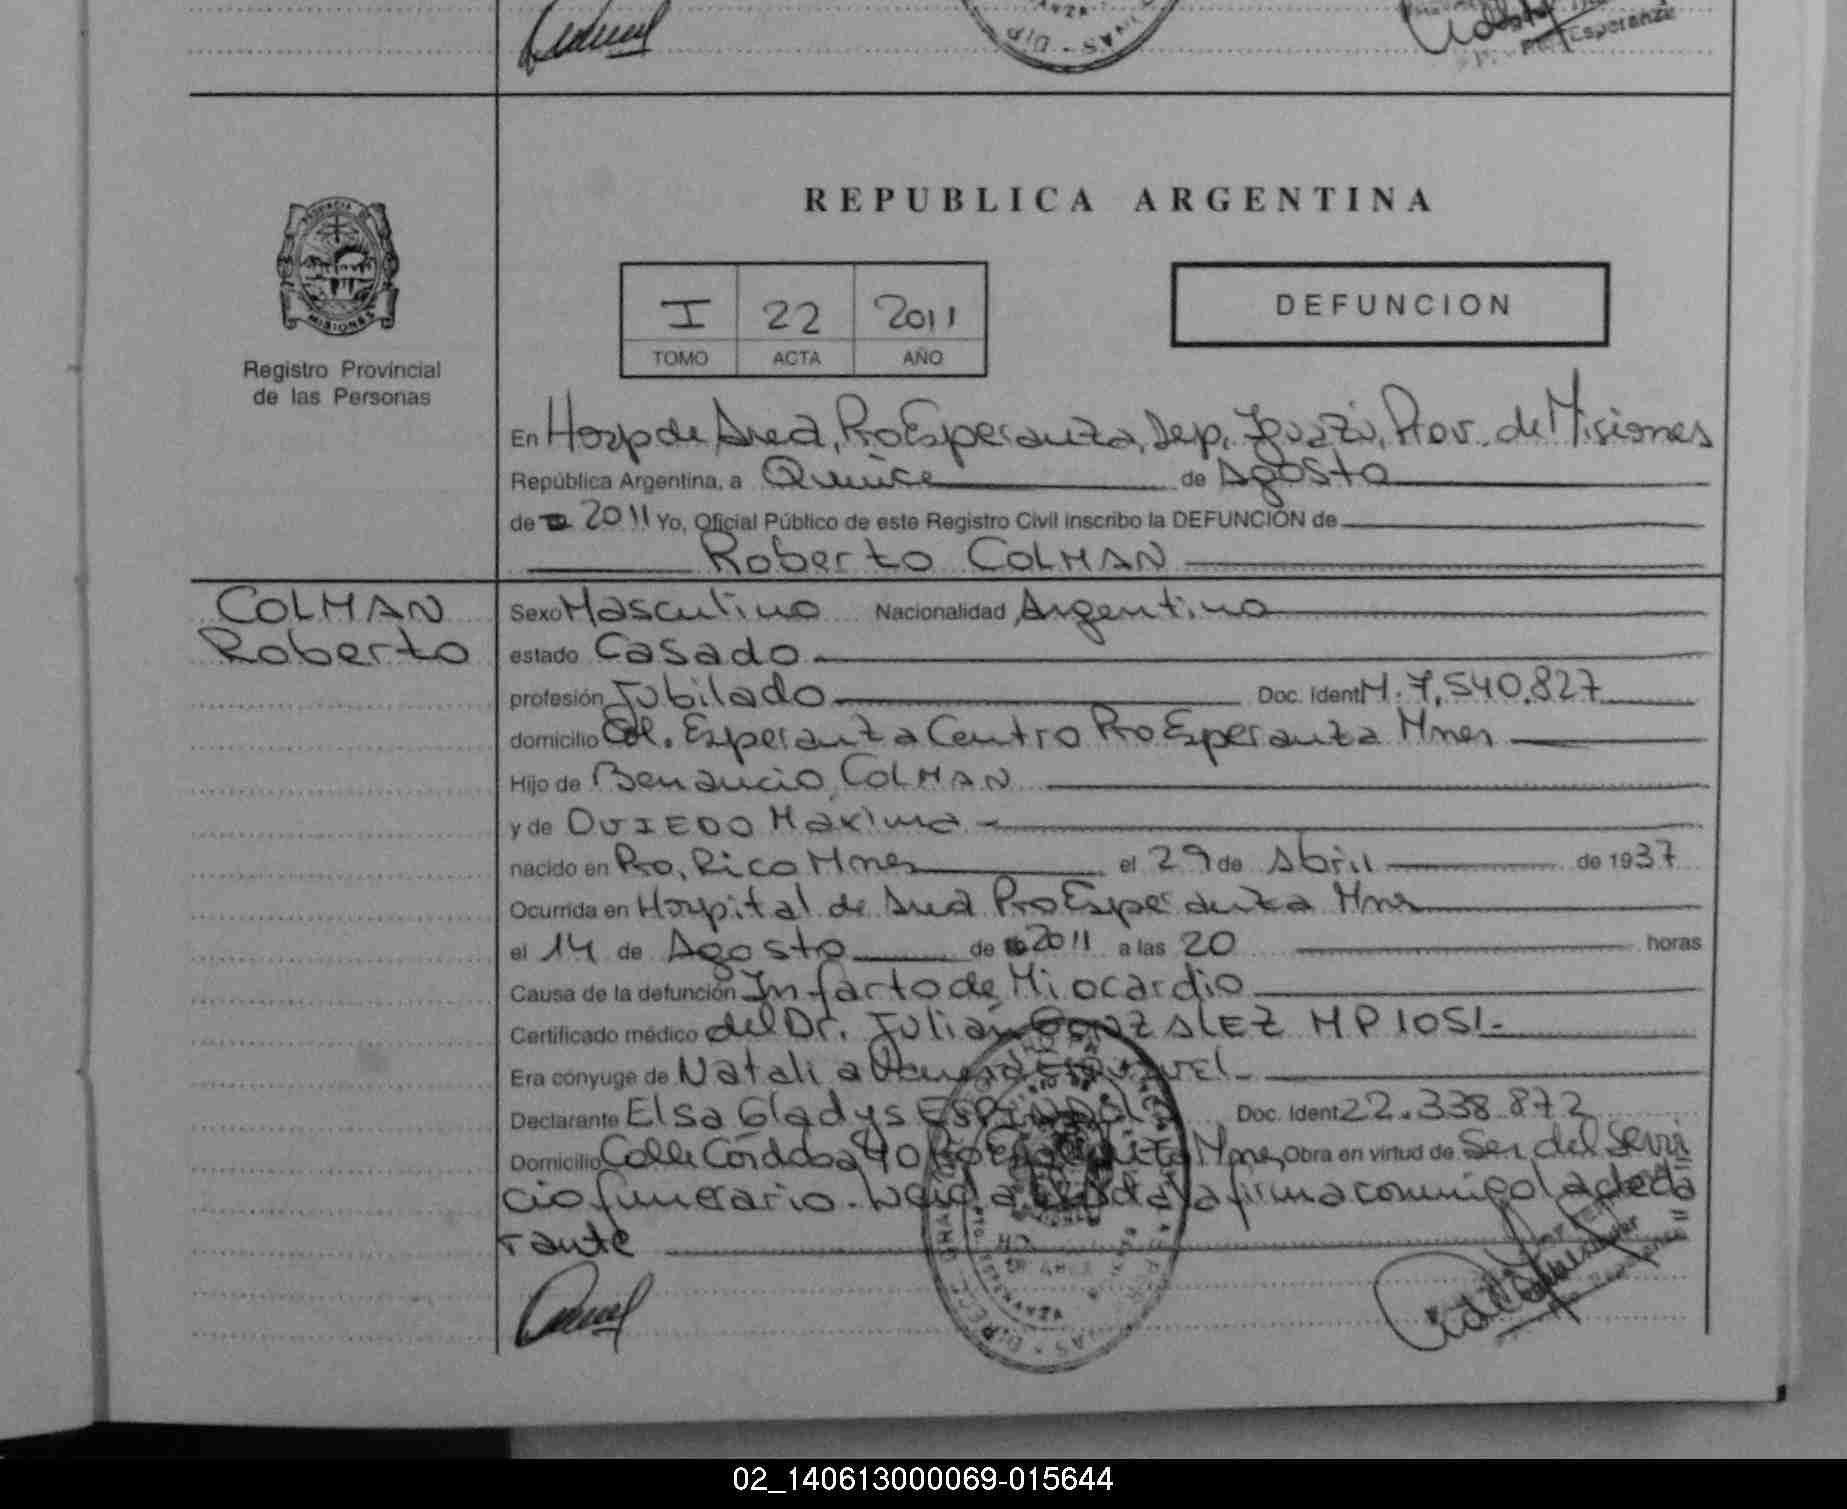 Esperanza
REPUBLICA ARGENTINA
PROVINCIA DE
MISIONES
I 22 2011
TOMO ACTA AÑO
DEFUNCION
Registro Provincial
de las Personas
En Hosp de Area, Pto Esperanza, Dep. Iguazú, Prov. de Misiones
República Argentina, a Quince de Agosto
de 2011 Yo, Oficial Público de este Registro Civil inscribo la DEFUNCIÓN de
Roberto COLMAN
COLMAN
Roberto
Sexo Masculino Nacionalidad Argentino
estado Casado
profesión Jubilado Doc. Ident M. 7,540,827
domicilio Col. Esperanza Centro Pto Esperanza Mnes
Hijo de Benancio COLMAN
y de OVIEDO Maxima
nacido en Pto. Rico Mnes el 29 de Abril de 1937
Ocurrida en Hospital de Area Pto Esperanza Mnes
el 14 de Agosto de 2011 a las 20 horas
Causa de la defunción Infarto de Miocardio
Certificado médico del Dr. Julián GONZALEZ MP 1051-
Era cónyuge de Natalia
Declarante Elsa Gladys ESPINDOLA Doc. Ident 22.338.872
Domicilio Calle Córdoba 40 Pto Mnes Obra en virtud de Ser del Servi
cio funerario. Leída la firma conmigo la decla
rante
02_140613000069-015644